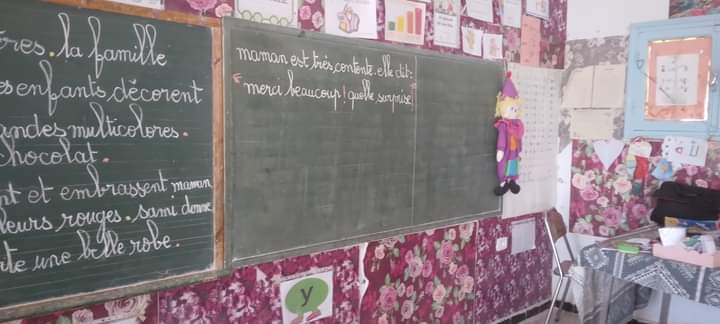 res. la famille
es enfants, décorent
andes multicolores.
chocolat.
nt et embrassent maman
leurs rouges. sami donne
te une belle robe.
maman est très, contente. elle dit:
« merci beaucoup! quelle surprise
y